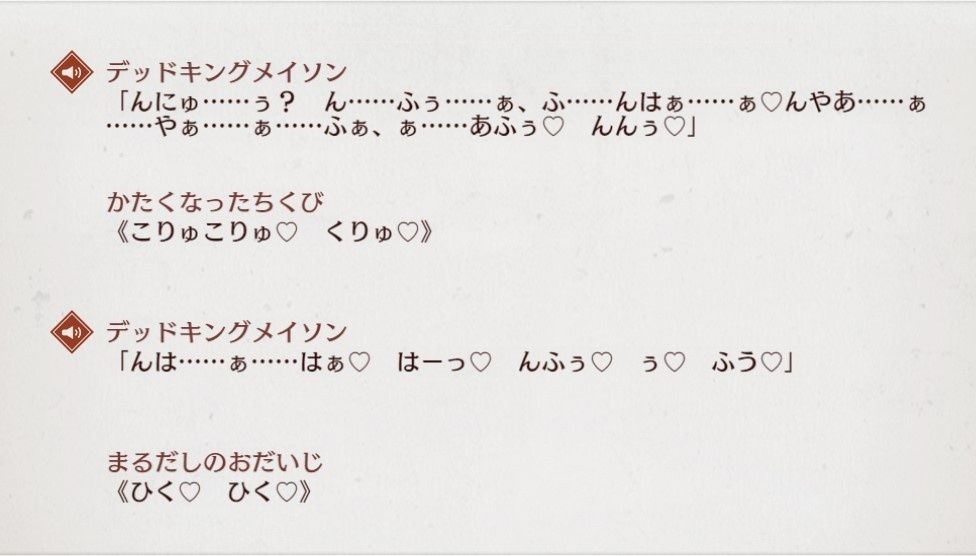 デッドキングメイソン
「んにゅ……ぅ？　ん……ふぅ……ぁ、ふ……んはぁ……ぁ♡んやあ……ぁ
……やぁ……ぁ……ふぁ、ぁ……あふぅ♡　んんぅ♡」
かたくなったちくび
《こりゅこりゅ♡　くりゅ♡》
デッドキングメイソン
「んは……ぁ……はぁ♡　はーっ♡　んふぅ♡　ぅ♡　ふう♡」
まるだしのおだいじ
《ひく♡　ひく♡》